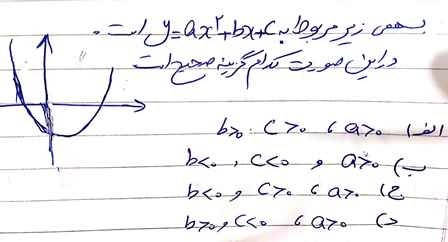 سهمی زیر مربوط به y=ax²+bx+c است.
در این صورت کدام گزینه صحیح است
الف) a>0 ، c>0 . b>0
ب) a>0 و c<0 , b<0
ج) a>0 ، c>0 و b<0
د) a>0 ، c<0 و b>0